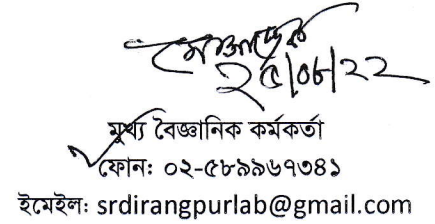 ২৫|০৮|২২
মুখ্য বৈজ্ঞানিক কর্মকর্তা
ফোন: ০২-৫৮৯৯৬৭৩৪১
ইমেইল: srdirangpurlab@gmail.com